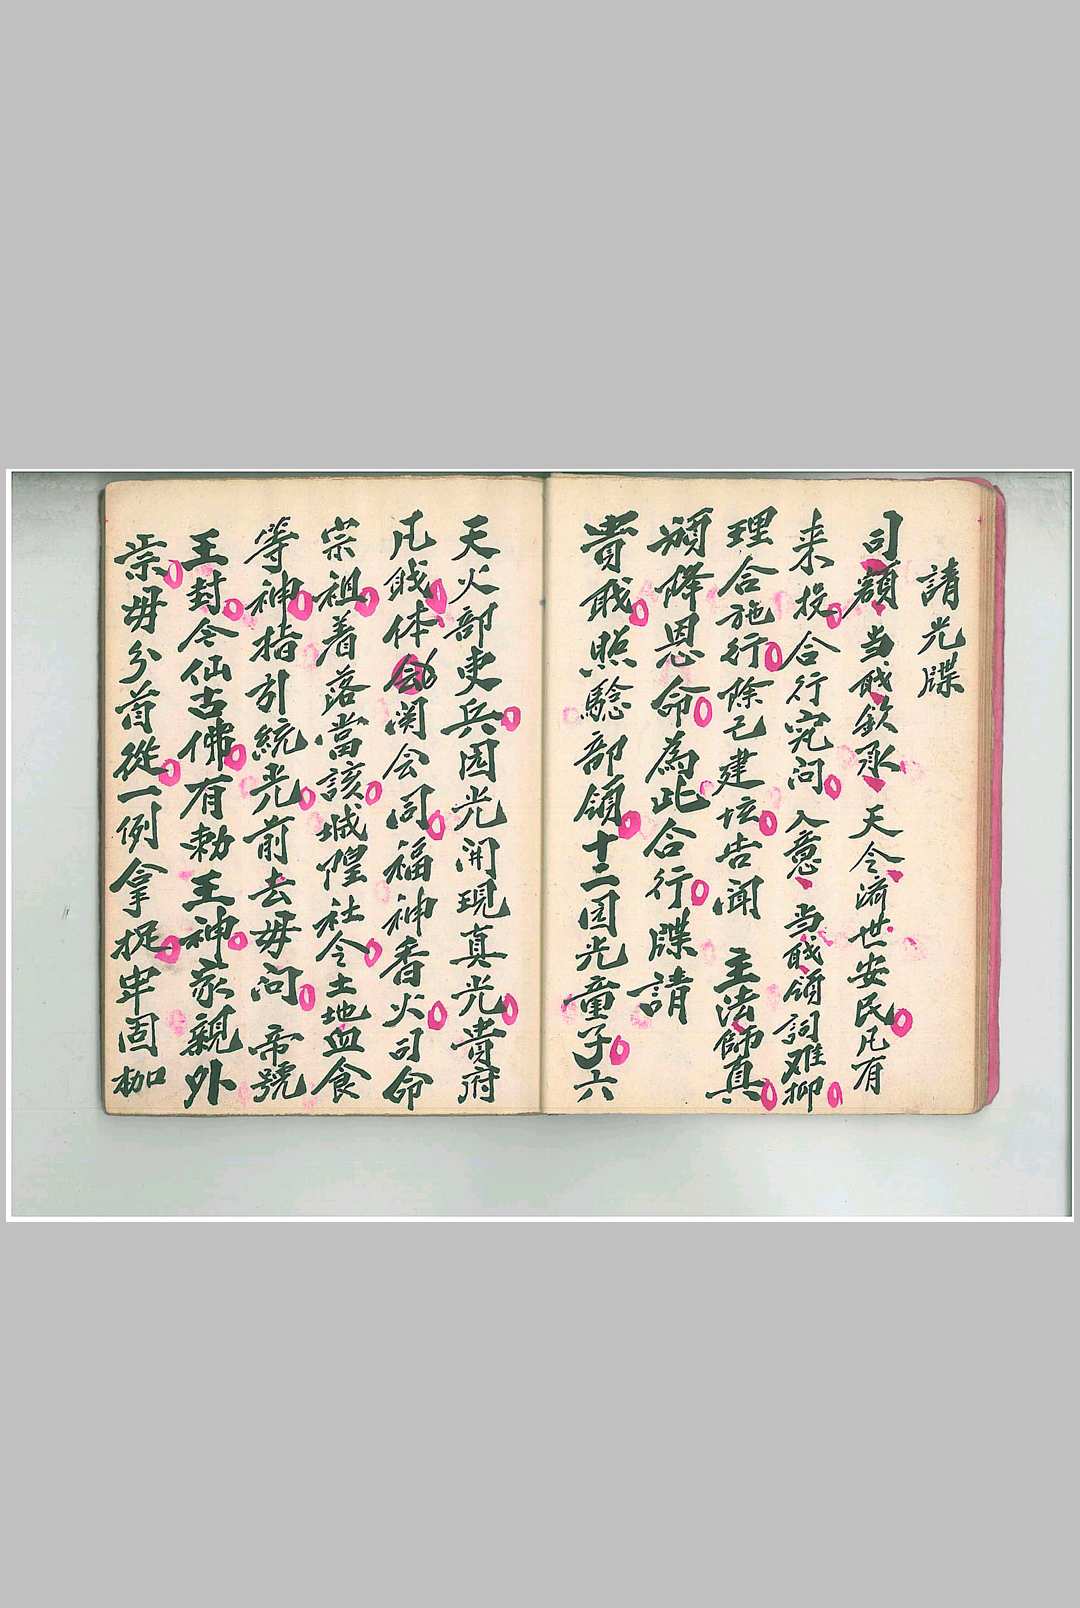 請光牒
司額当戝欽承天令济世安民凡有
来投合行究问入意当戝領詞难抑
理合施行除已建坛告闻主法師真
頒降恩命為此合行牒請
貴戝照騐部領十二国光童子六
天火部吏兵国光開現真光貴府
凡戝体会関会同福神香火司命
宗祖着落當該城隍社令土地血食
等神指引統光前去毋问帝號
王封今仙古佛有勅王神家親外
祟毋分首從一例拿捉牢固枷